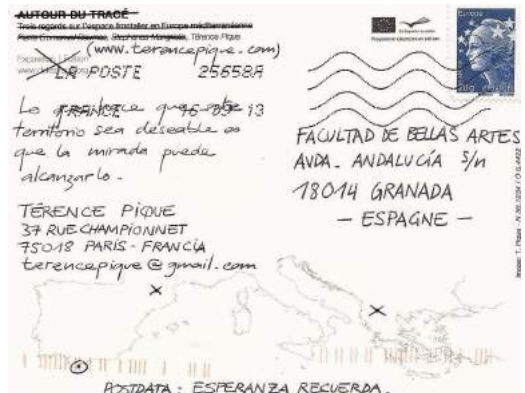 AUTOUR DU TRACÉ
Trois regards sur l'espace frontalier en Europe méditerranéenne
Térence Pique
(www.terencepique.com)
LA POSTE 25658A
FRANCE 16 03 13
Lo que hace que este
territorio sea deseable es
que la mirada puede
alcanzarlo.
TÉRENCE PIQUE
37 RUE CHAMPIONNET
75018 PARIS - FRANCIA
terencepique@gmail.com
FACULTAD DE BELLAS ARTES
AVDA. ANDALUCÍA S/n
18014 GRANADA
- ESPAGNE -
POSTDATA: ESPERANZA RECUERDA.